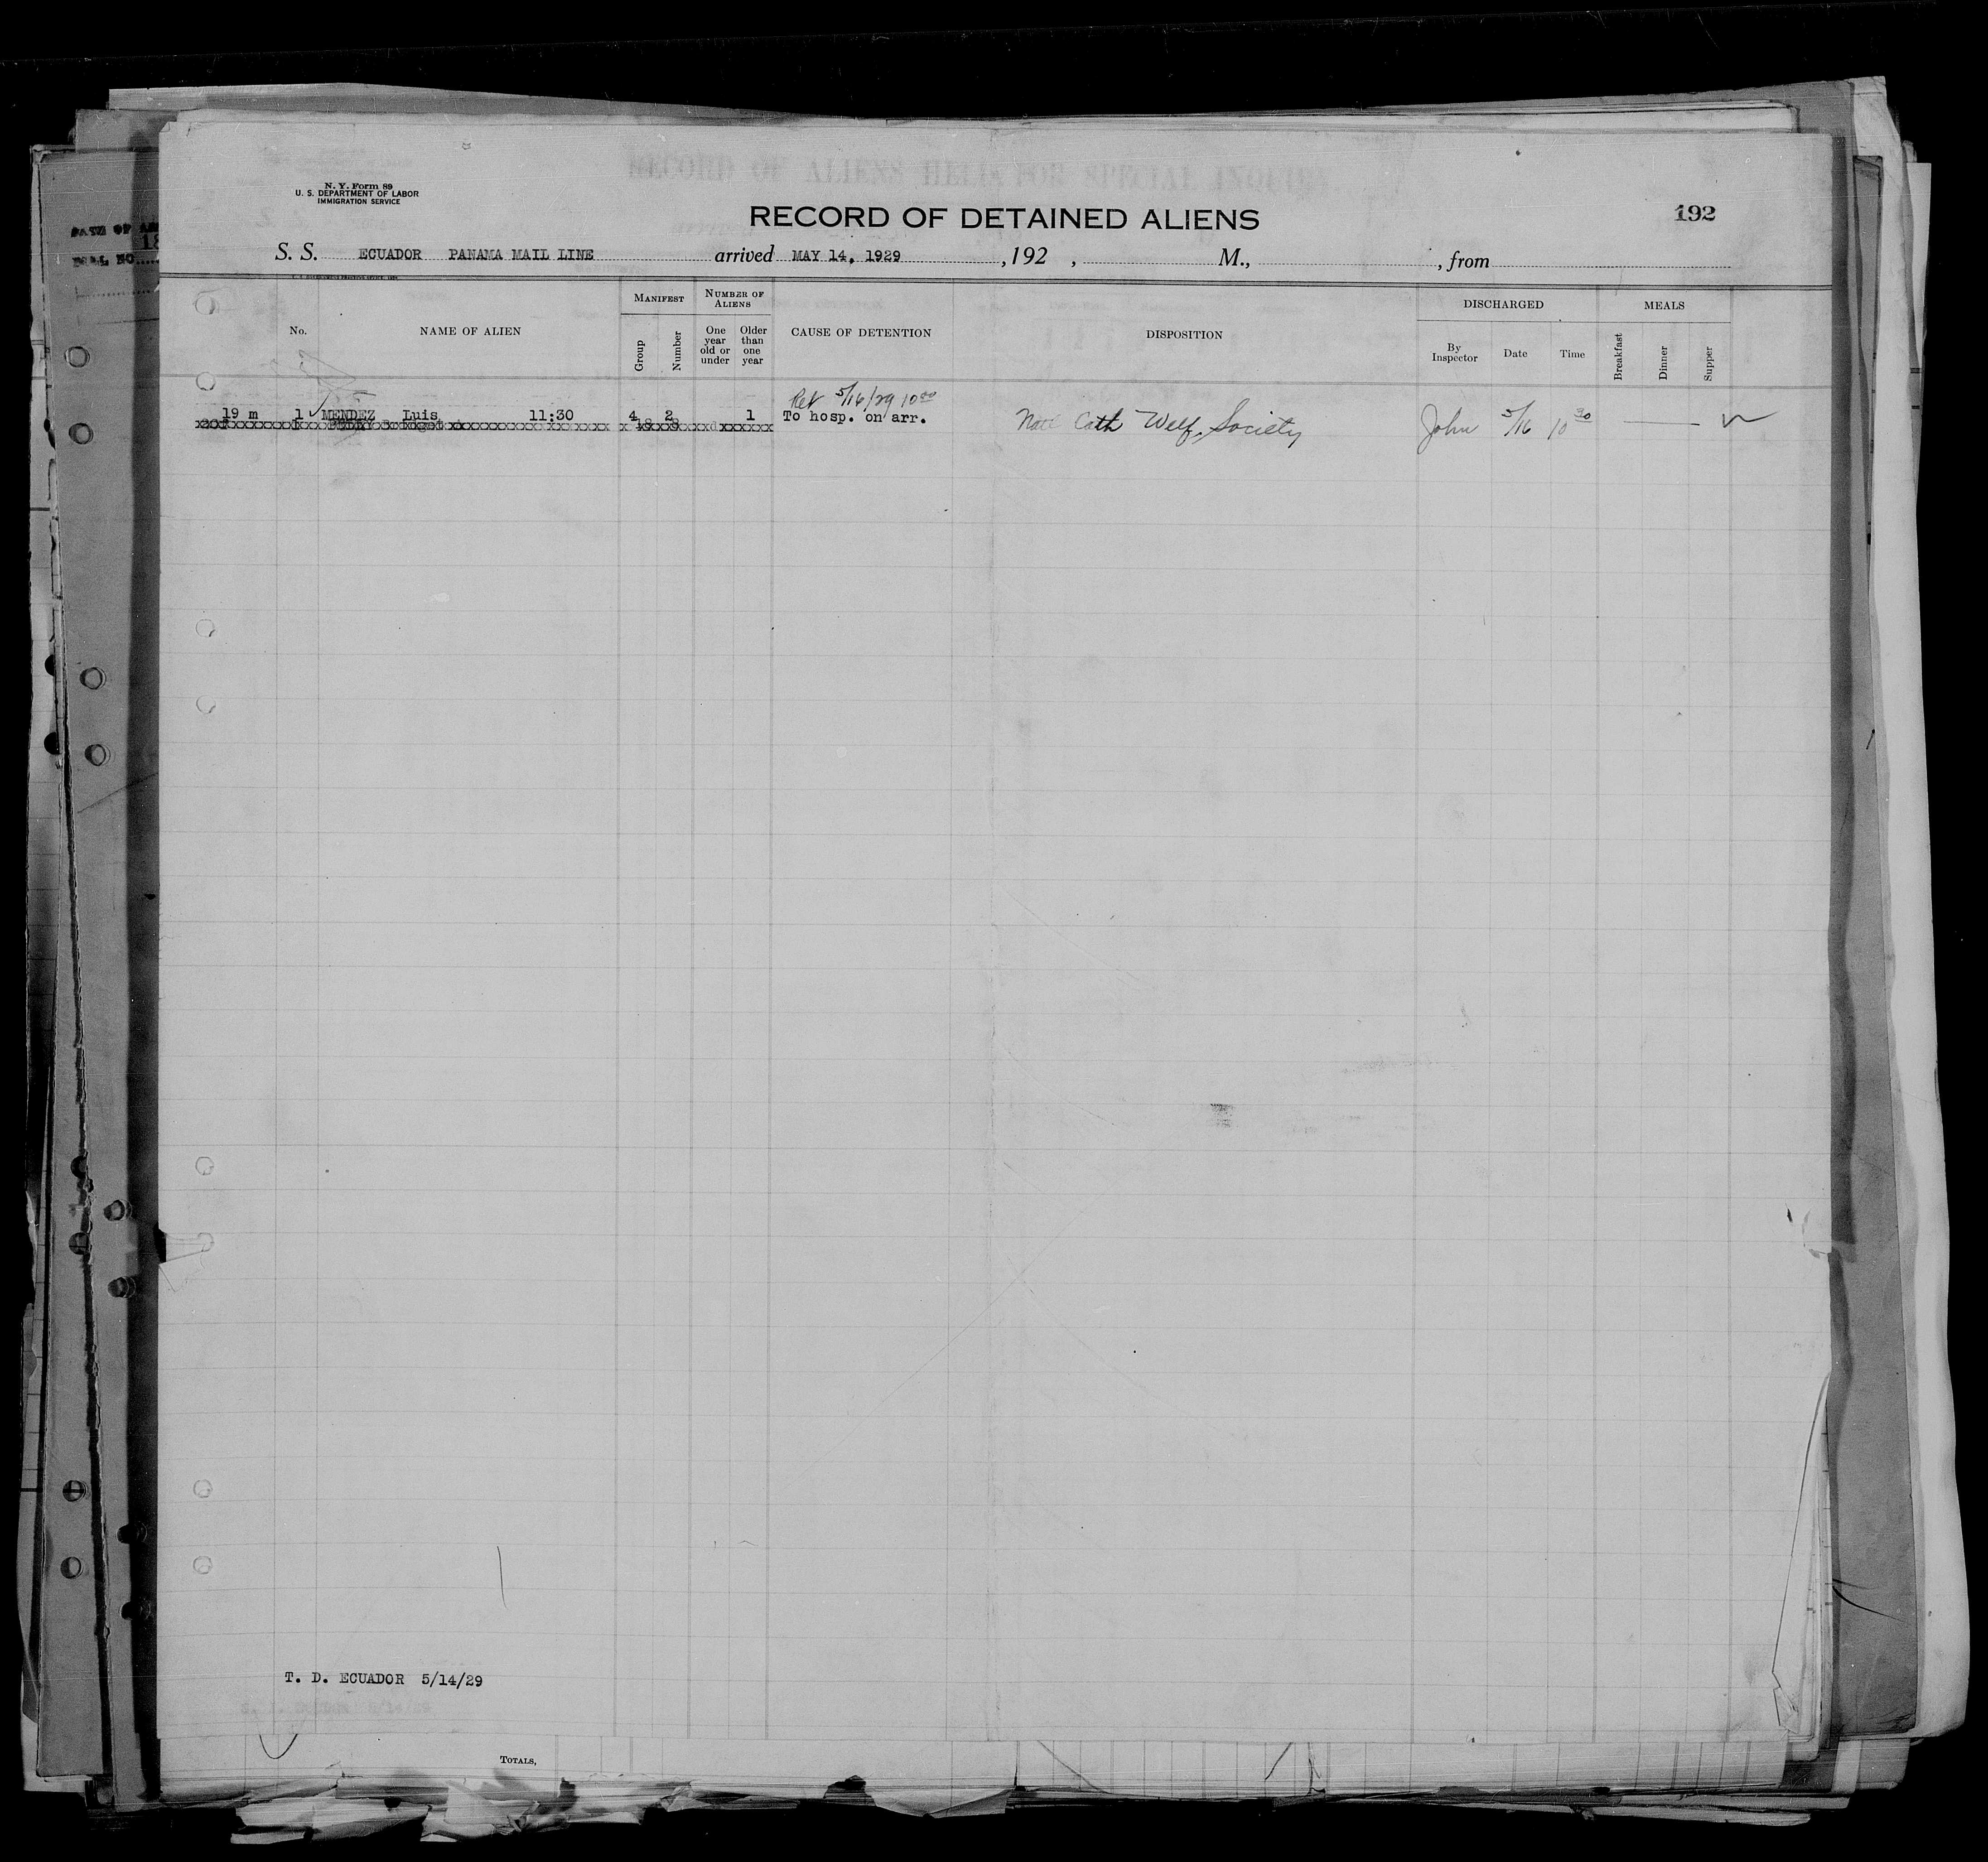 RECORD OF ALIENS HELD FOR SPECIAL INQUIRY
N. Y. Form 89
U. S. DEPARTMENT OF LABOR
IMMIGRATION SERVICE
RECORD OF DETAINED ALIENS
192
DATE OF
S. S. ECUADOR PANAMA MAIL LINE arrived MAY 14, 1929 , 192 , M., , from
No. NAME OF ALIEN MANIFEST Group Number NUMBER OF ALIENS One year old or under Older than one year CAUSE OF DETENTION DISPOSITION DISCHARGED By Inspector Date Time MEALS Breakfast Dinner Supper
Ret 5/16/29 10 00
19 m 1 MENDEZ Luis 11:30 4 2 1 To hosp. on arr. Natl Cath Welf. Society John 5/16 10 30
T. D. ECUADOR 5/14/29
TOTALS,